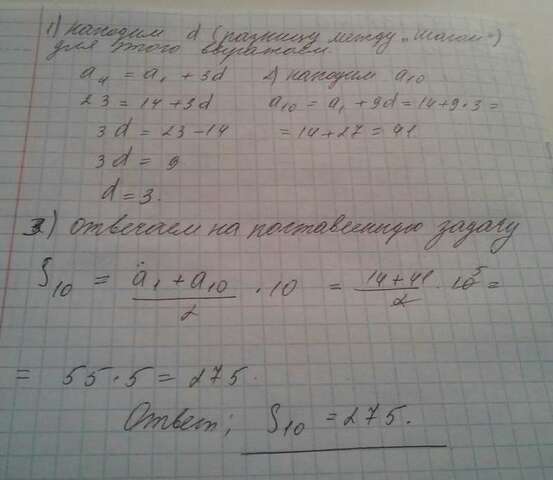 1) находим d (разницу между „шагом")
для этого выражаем
a₄ = a₁ + 3d
23 = 14 + 3d
3d = 23 - 14
3d = 9
d = 3.
2) находим a₁₀
a₁₀ = a₁ + 9d = 14 + 9·3 =
= 14 + 27 = 41
3) отвечаем на поставленную задачу
S₁₀ = (a₁ + a₁₀)/2 · 10 = (14 + 41)/2 · 10 5 =
= 55 · 5 = 275.
Ответ; S₁₀ = 275.